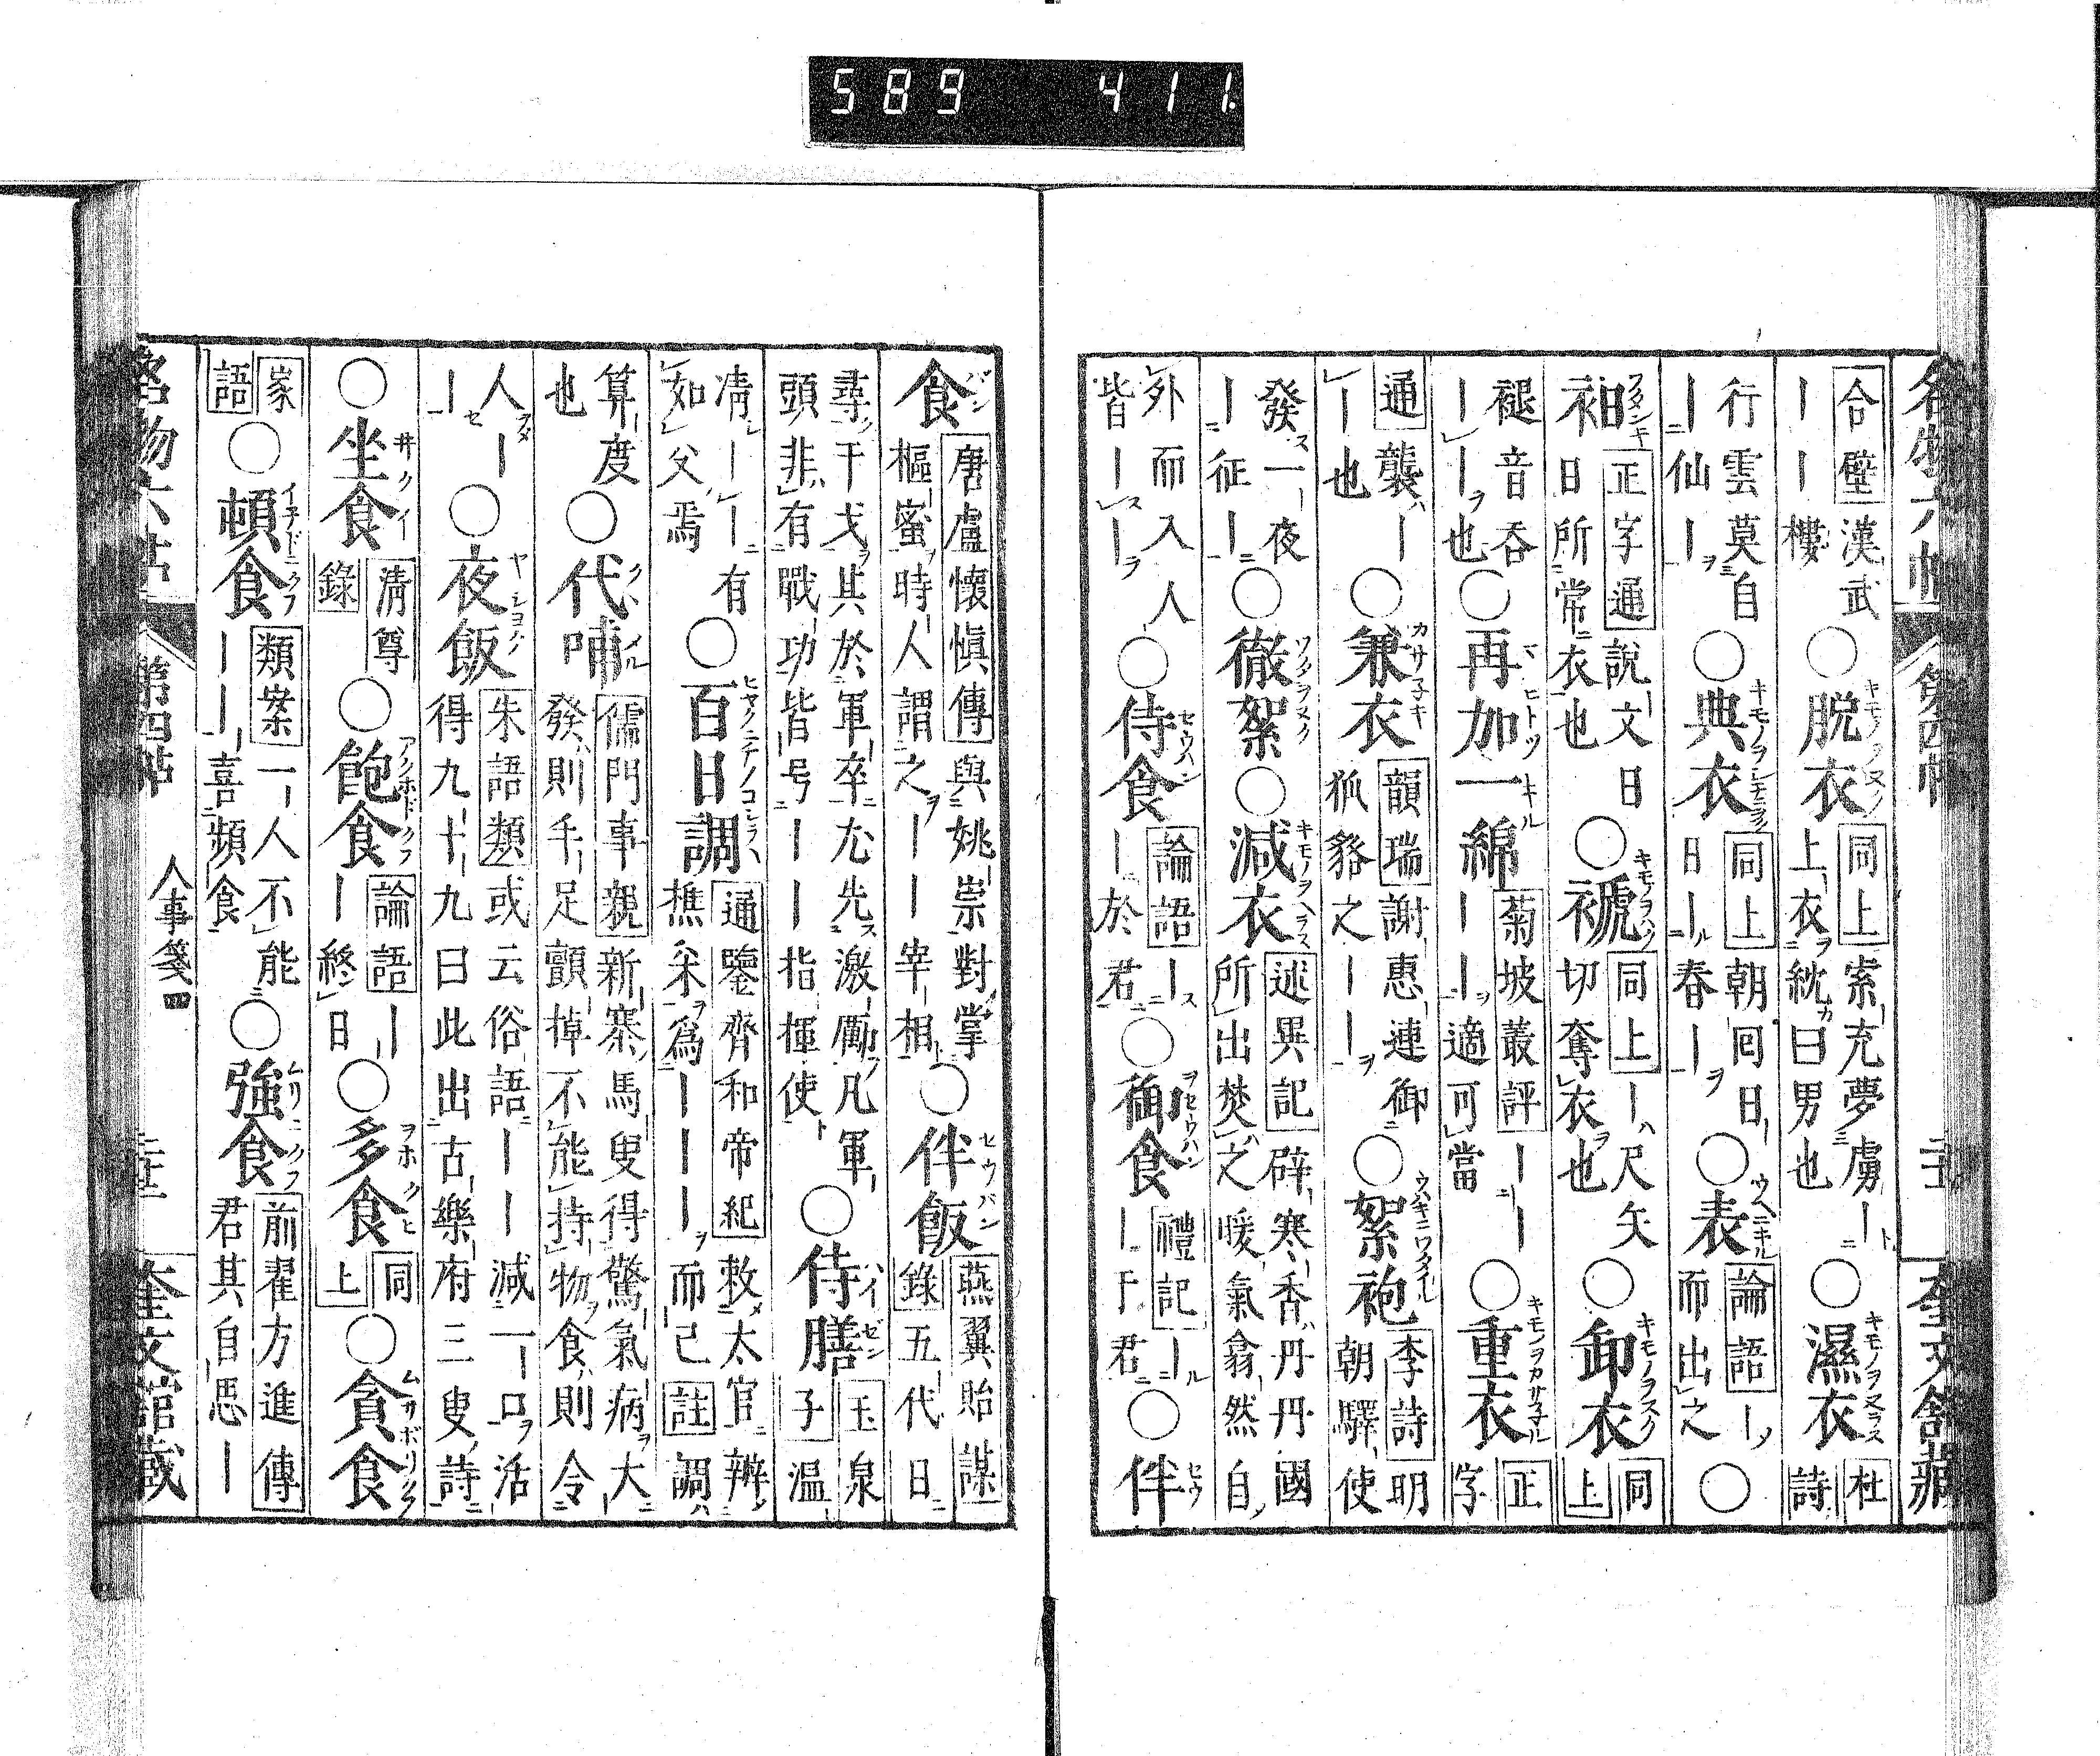 589 411
名物六帖 第四帖 奎文館藏
合璧 漢武
｜｜樓 ○脱衣 同上 索充夢虜｜
上衣紞曰男也 ○濕衣 杜詩
行雲莫自
｜仙｜ ○典衣 同上 朝囘日
日｜春｜ ○表 論語 ｜
而出之 ○
袒 正字通 說文曰
日所常衣也 ○褫 同上 ｜尺矢
切奪衣也 ○卸衣 同上
褪音吞
｜｜也 ○再加一綿 菊坡叢評 ｜｜
｜｜適可當 ○重衣 正字
通 襲｜
｜也 ○兼衣 韻瑞 謝惠連御
狐貉之｜｜ ○絮袍 李詩 明
朝驛使
發一夜
｜征｜ ○徹絮 ○減衣 述異記 辟寒香丹丹國
所出焚之暖氣翕然自
外而入人
皆｜｜ ○侍食 論語 ｜
｜於君 ○御食 禮記 ｜
｜于君 ○伴
食 唐盧懷愼傳 與姚崇對掌
樞蜜時人謂之｜｜宰相 ○伴飯 燕翼貽謀
錄 五代日
尋干戈其於軍卒尢先激勵凡軍
頭非有戰功皆号｜｜指揮使 ○侍膳 玉泉
子 温
凊｜｜有
如父焉 ○百日調 通鑒齊和帝紀 敕太官辦
樵米爲｜｜｜而已 註 調
算度
也 ○代哺 儒門事親 新寨馬叟得驚氣病大
發則手足顫掉不能持物食則令
人｜
｜ ○夜飯 朱語類 或云俗語｜｜減一口活
得九十九曰此出古樂府三叟詩
○坐食 淸尊
錄 ○飽食 論語 ｜
｜終日 ○多食 同上 ○貪食
家
語 ○頓食 類案 一人不能
｜｜喜頻食 ○強食 前翟方進傳
君其自悉｜
名物六帖 第四帖 人事箋四 奎文館藏